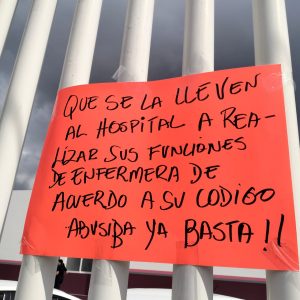 QUE SE LA LLEVEN
AL HOSPITAL A REA-
LIZAR SUS FUNCIONES
DE ENFERMERA DE
ACUERDO A SU CODIGO
ABUSIBA YA BASTA!!